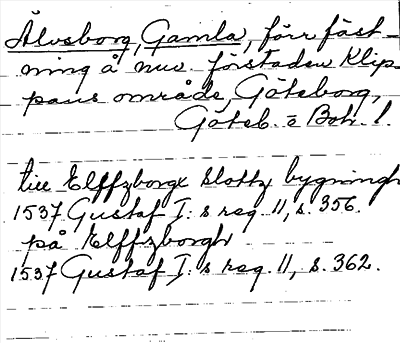 Älvsborg, Gamla, förr fäst-
ning å nuv. förstaden Klip-
pans område, Göteborg,
Göteb. o Boh. l.
till Elffzborgx Slottz bygningh
1537 Gustaf I:s reg. 11, s. 356.
på Elffzborgh
1537 Gustaf I:s reg. 11, s. 362.